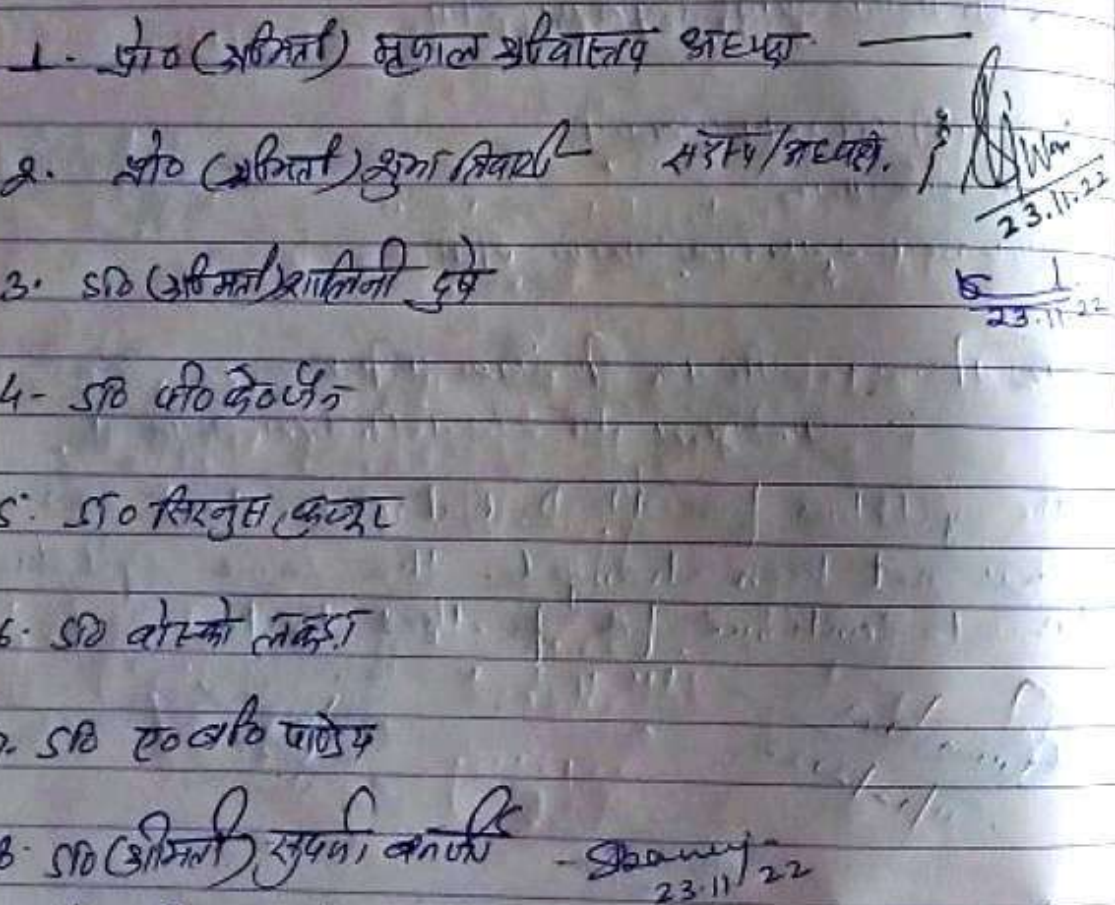 1. प्रो० (श्रीमती) मृणाल श्रीवास्तव अध्यक्ष
2. प्रो० (श्रीमती) शुभा तिवारी सदस्य/अध्यक्ष.
23.11.22
3. डॉ० (श्रीमती) शालिनी दुबे
23.11.22
4- डॉ० पी० के० जैन
5. डॉ० सिरनुस कुजूर
6. डॉ० बोस्को लकड़ा
7. डॉ० ए० बी० पाण्डेय
8. डॉ० (श्रीमती) सुपर्णा बनर्जी - Sbanerj 23.11.22